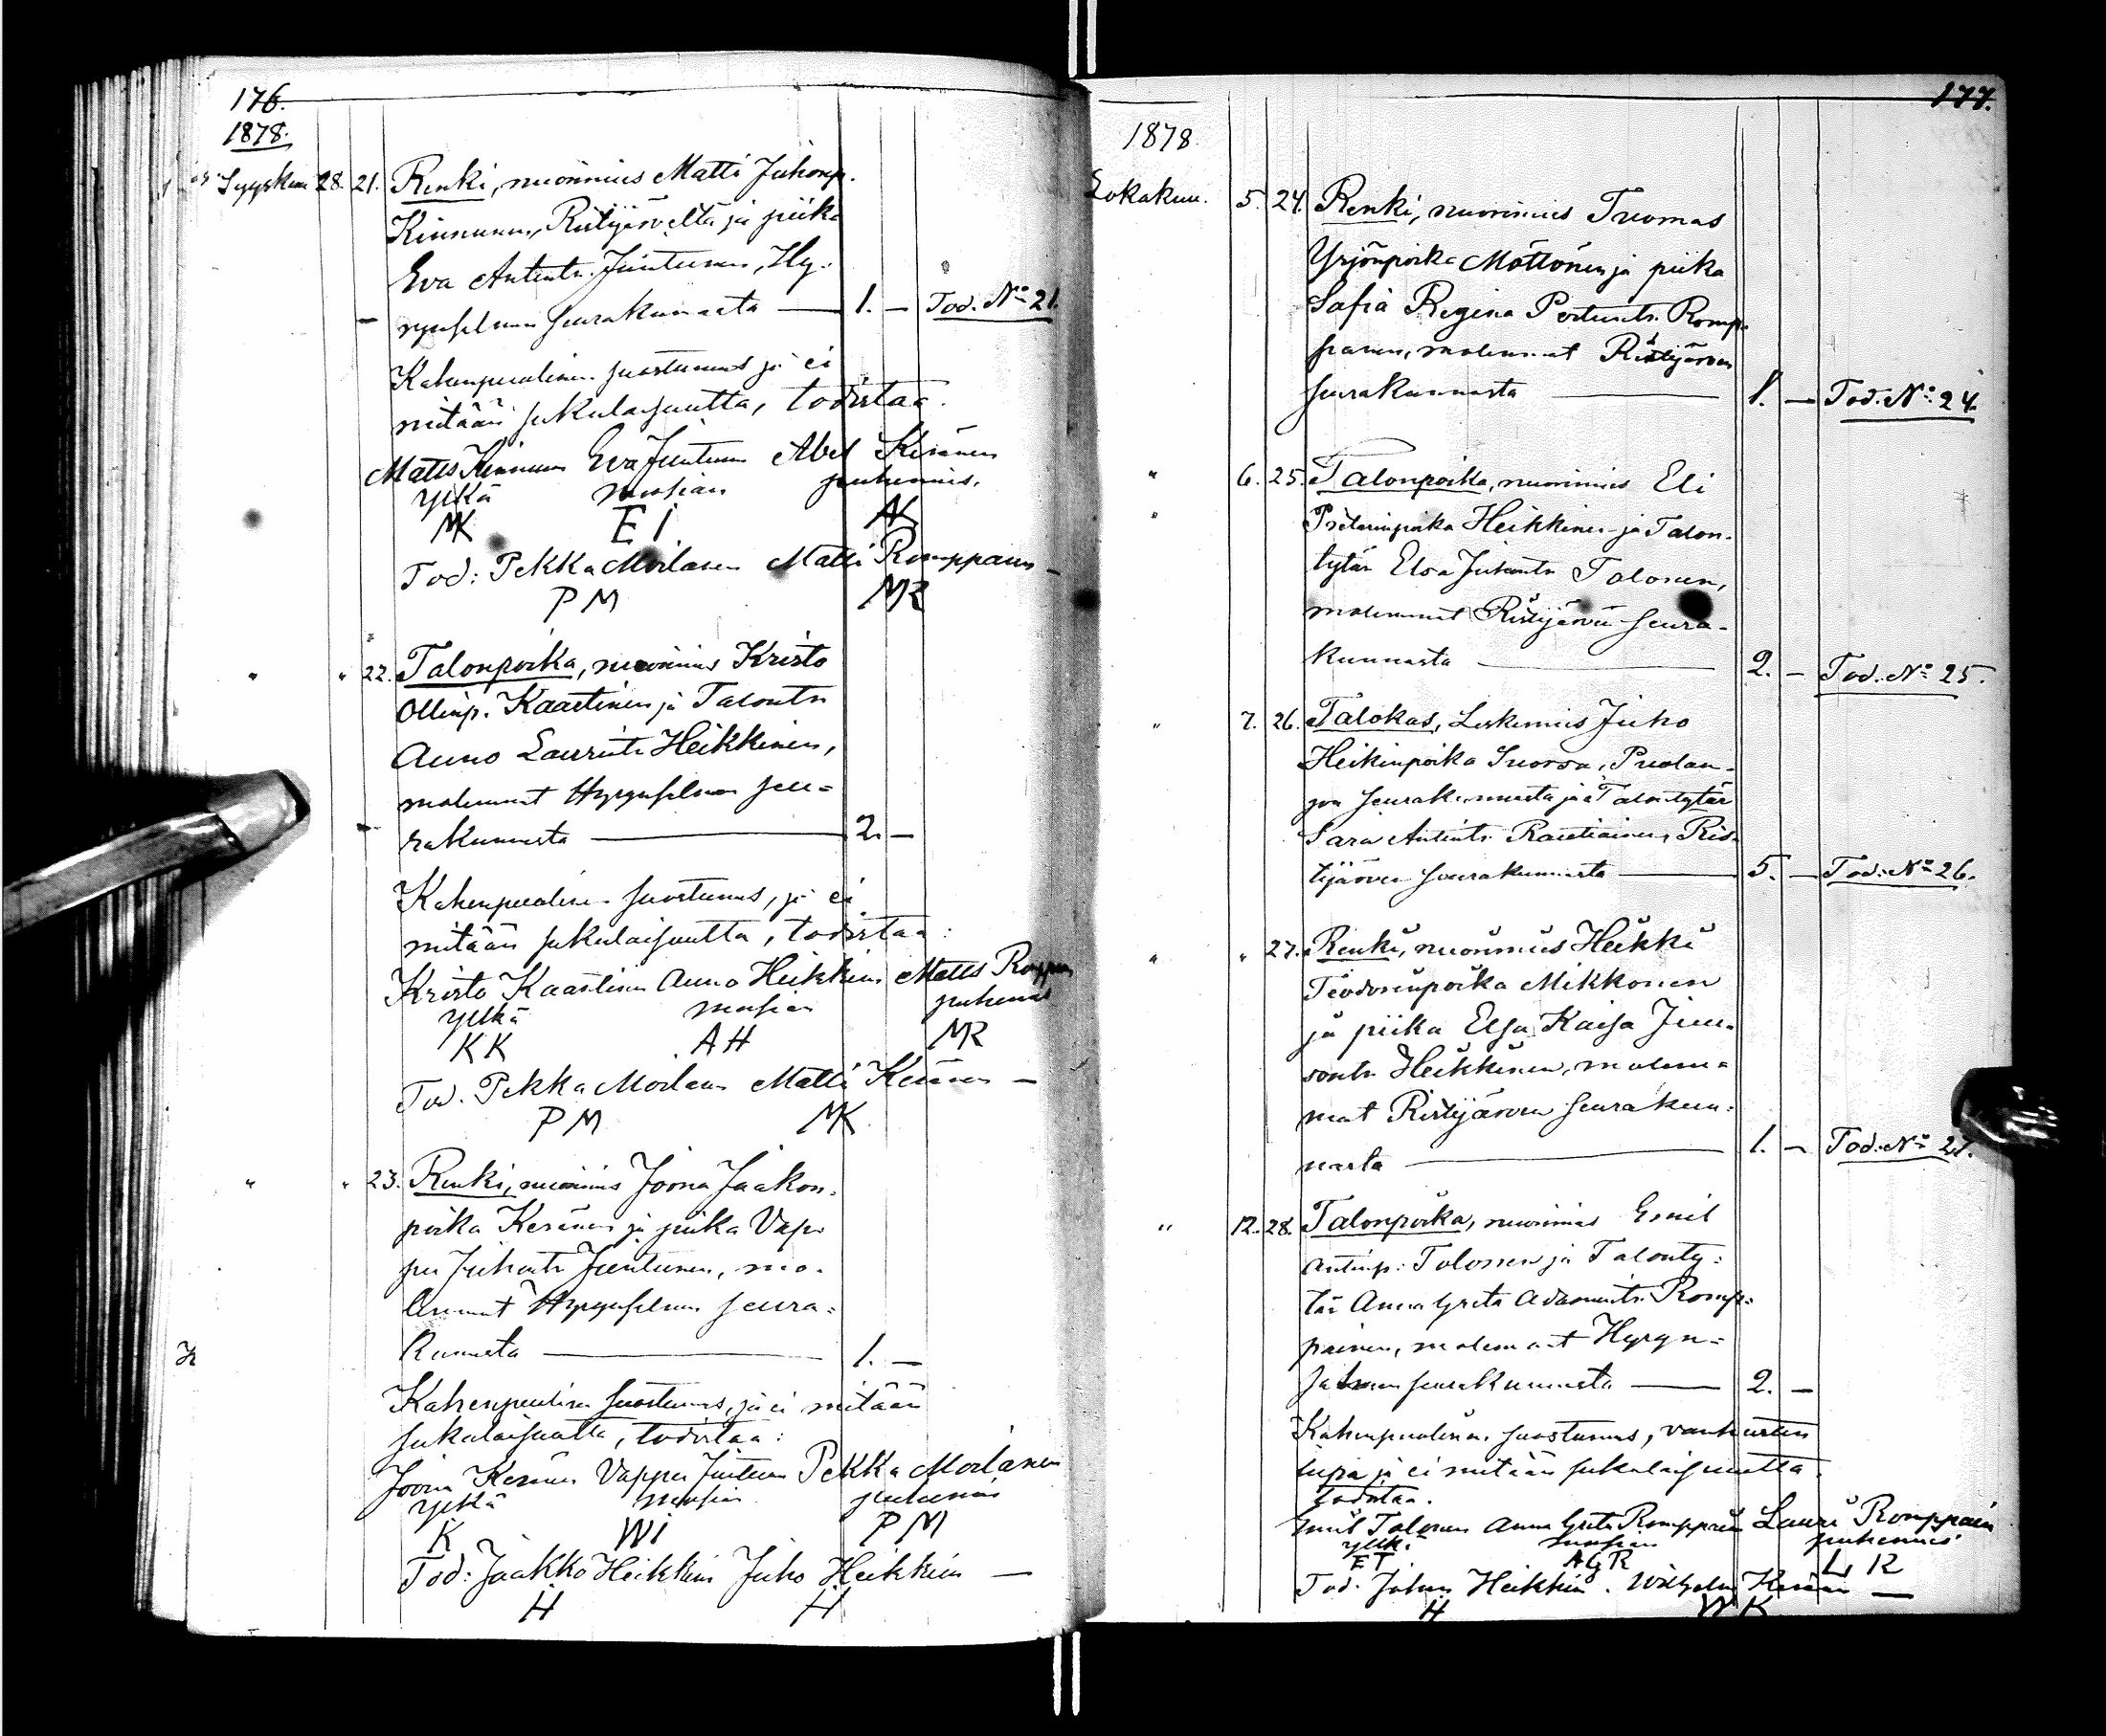 176.
1878.
Syyskuu 28. 21. Renki, nuorimies Matti Juhonp.
Kinnunen, Ristijärveltä ja piika
Eva Antintr. Juntunen, Hy-
rynsalmen seurakunnasta — 1. — Tod. No 21.
Kahenpuolinen suostumus ja ei
mitään sukulaisuutta, todistaa.
Matts Kinnunen Eva Juntunen Abel Keränen
ylkä morsian puhemies.
MK EI AK
Tod: Pekka Moilanen Matti Romppanen —
PM MR
" " 22. Talonpoika, nuorimies Kristo
Ollinp. Kaartinen ja Talontr
Anno Laurintr Heikkinen,
molemmat Hyrynsalmen seu=
rakunnasta — 2. —
Kahenpuolinen suostumus, ja ei
mitään sukulaisuutta, todistaa:
Kristo Kaartinen Anno Heikkinen Matts
ylkä morsian puhemies
KK AH MR
Tod. Pekka Moilanen Matti Keränen —
PM MK
" " 23. Renki, nuorimies Joona Jaakon-
poika Keränen ja piika Vap-
pu Juhontr Juntunen, mo-
lemmat Hyrynsalmen seura-
kunnasta — 1. —
Kahenpuolinen suostumus, ja ei mitään
sukulaisuutta, todistaa:
Joona Keränen Vappu Juntunen Pekka Moilanen
ylkä morsian puhemies
K WI PM
Tod: Jaakko Heikkinen Juho Heikkinen —
H H
177.
1878
Lokakuu. 5. 24. Renki, nuorimies Tuomas
Yrjönpoika Möttönen ja piika
Sofia Regina Pertuntr. Romp-
panen, molemmat Ristijärven
seurakunnasta — 1. — Tod. No 24.
" 6. 25. Talonpoika, nuorimies Eli
Pietarinpoika Heikkinen ja Talon-
tytär Elsa Juhontr Tolonen,
molemmat Ristijärven seura-
kunnasta — 2. — Tod. No 25.
" 7. 26. Talokas, Leskimies Juho
Heikinpoika Suorsa, Puolan-
gon seurakunnasta ja Talontytär
Sara Antintr Rautiainen, Ris-
tijärven seurakunnasta — 5. — Tod. No 26.
" " 27. Renki, nuorimies Heikki
Teodorinpoika Mikkonen
ja piika Elsa Kaisa
Heikkinen, molem=
mat Ristijärven seurakun-
nasta — 1. — Tod. No 27.
" 12. 28. Talonpoika, nuorimies Emil
Antinp. Tolonen ja Talonty-
tär Anna Greta Adamintr. Romp=
painen, molemmat Hyryn=
salmen seurakunnasta — 2. —
Kahenpuolinen suostumus, vanhurten
lupa ja ei mitään sukulaisuutta
todistaa.
Emil Tolonen Anna Greta Romppainen Lauri Romppain
ylkä morsian puhemies
ET AGR LR
Tod. Johan Heikkinen. Wilhelm Keränen —
H WK